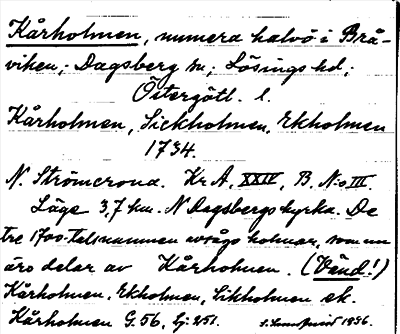 Kårholmen, numera halvö i Brå-
viken; Dagsberg sn; Lösings hd;
Östergötl. l.
Kårholmen, Sickholmen, Ekholmen
1734.
N. Strömcrona. Kr. A, XXIV, B. N:o III.
Läge 3,7 km. N Dagsbergs kyrka. De
tre 1700-talsnamnen avsågo holmar, som nu
äro delar av Kårholmen. (Vänd!)
Kårholmen, Ekholmen, Sikholmen ek.
Kårholmen G. 56, Gj 251.
1936.